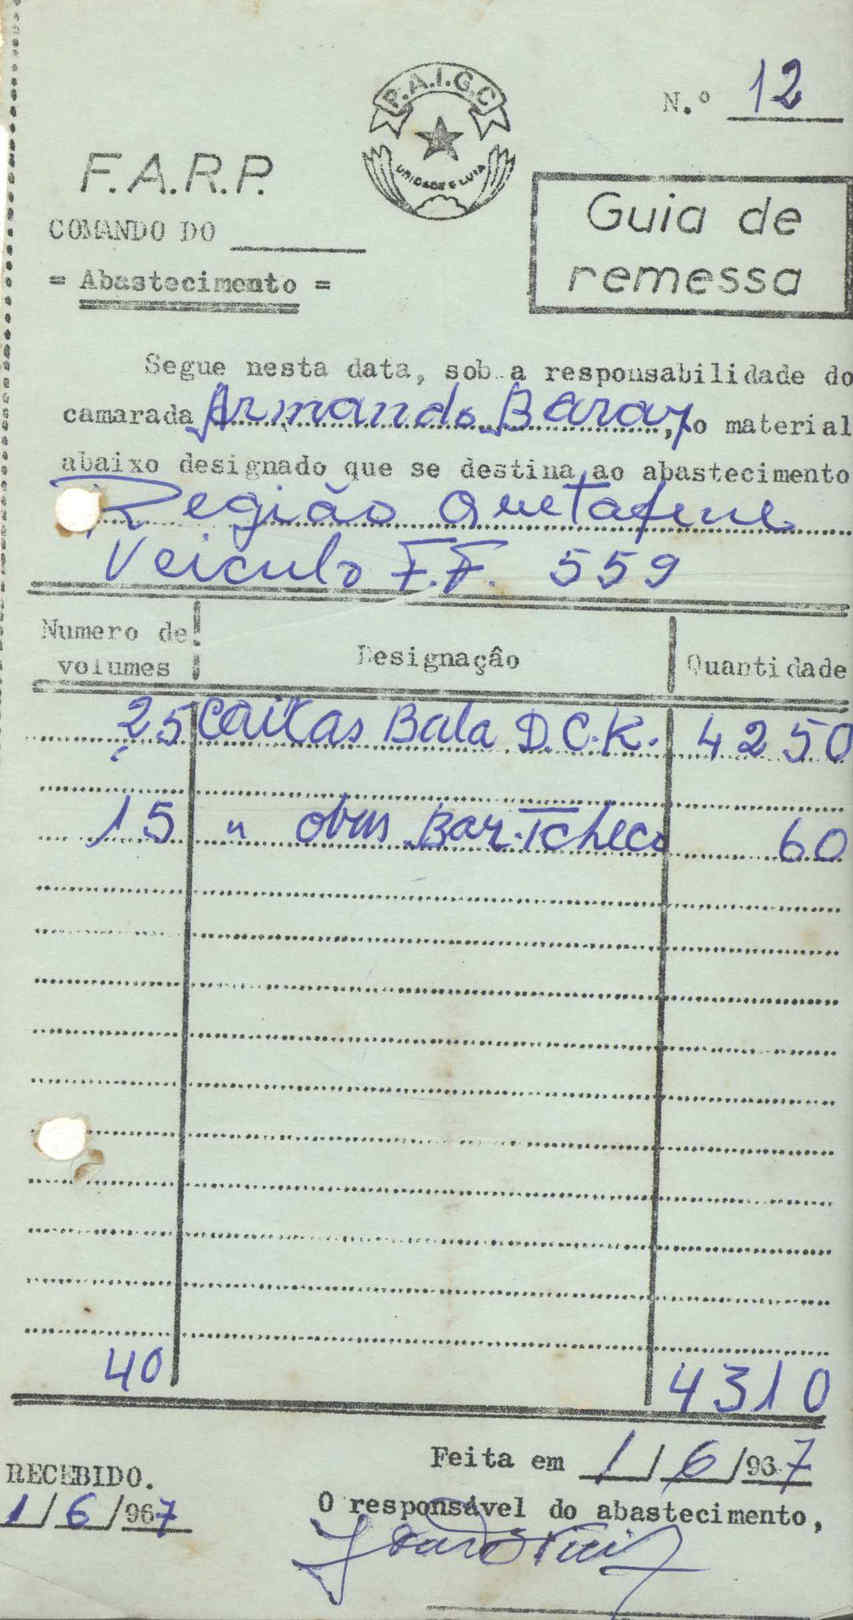 P.A.I.G.C
UNIDADE E LUTA
N.º 12
F.A.R.P.
COMANDO DO
= Abastecimento =
Guia de
remessa
Segue nesta data, sob a responsabilidade do
camarada Armando Baray, o material
abaixo designado que se destina ao abastecimento
Região Quetafene
Veiculo F.F. 559
Numero de volumes Designação Quantidade
25 caixas Bala D.C.K. 4250
15 " obus Bar.Tcheco 60
40 4310
Feita em 1/6/967
RECEBIDO.
1/6/967
O responsável do abastecimento,